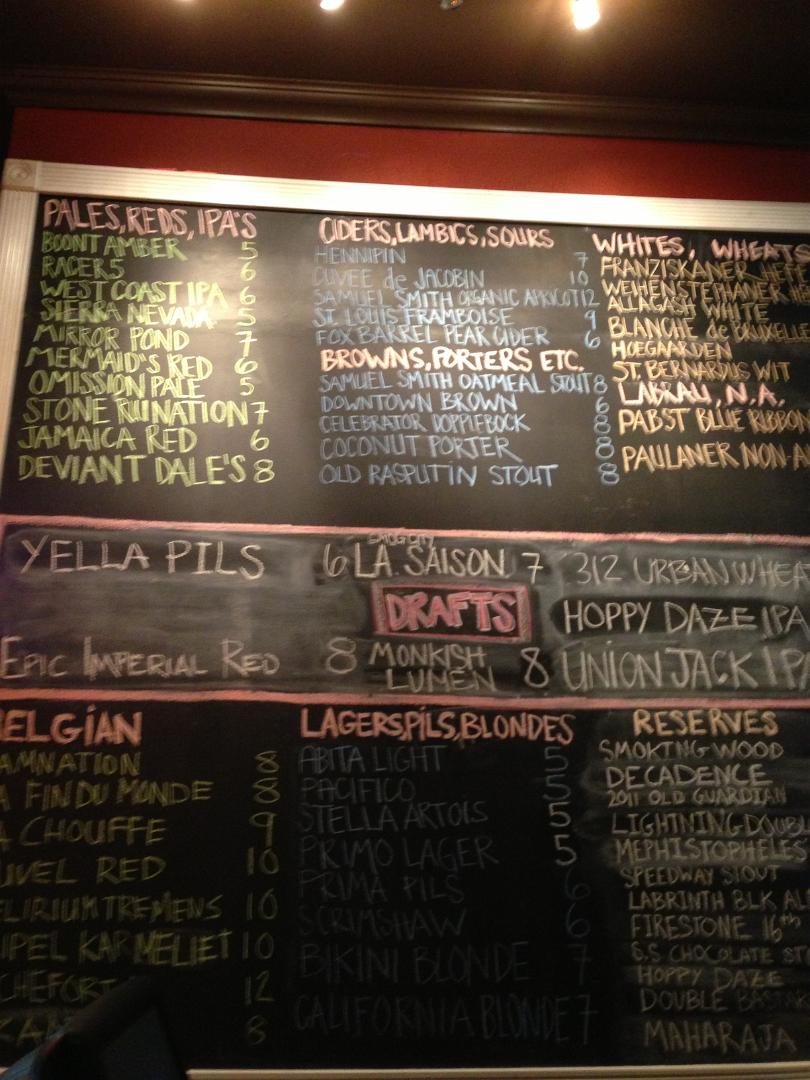 PALES, REDS, IPA'S
BOONT AMBER 5
RACER 5 6
WEST COAST IPA 6
SIERRA NEVADA 5
MIRROR POND 7
MERMAID'S RED 6
OMISSION PALE 5
STONE RUINATION 7
JAMAICA RED 6
DEVIANT DALE'S 8
CIDERS, LAMBICS, SOURS
HENNIPIN 7
CUVEE de JACOBIN 10
SAMUEL SMITH ORGANIC APRICOT 12
ST. LOUIS FRAMBOISE 9
FOX BARREL PEAR CIDER 6
BROWNS, PORTERS ETC.
SAMUEL SMITH OATMEAL STOUT 8
DOWNTOWN BROWN 6
CELEBRATOR DOPPLEBOCK 8
COCONUT PORTER 8
OLD RASPUTIN STOUT 8
WHITES, WHEATS
FRANZISKANER HEFE
WEIHENSTEPHANER H
ALLAGASH WHITE
BLANCHE de BRUXELLE
HOEGAARDEN
ST. BERNARDUS WIT
LABRAU, N.A.
PABST BLUE RIBBON
PAULANER NON-A
YELLA PILS 6
LA SAISON 7
312 URBAN WHEA
DRAFTS
HOPPY DAZE IPA
EPIC IMPERIAL RED 8
MONKISH
LUMEN 8
UNION JACK IPA
ELGIAN
AMNATION 8
A FIN DU MONDE 8
A CHOUFFE 9
UVEL RED 10
ELIRIUM TREMENS 10
IPEL KARMELIET 10
CHEFORT 12
8
LAGERS, PILS, BLONDES
ABITA LIGHT 5
PACIFICO 5
STELLA ARTOIS 5
PRIMO LAGER 5
PRIMA PILS 6
SCRIMSHAW 6
BIKINI BLONDE 7
CALIFORNIA BLONDE 7
RESERVES
SMOKING WOOD
DECADENCE
2011 OLD GUARDIAN
LIGHTNING DOUBL
MEPHISTOPHELES
SPEEDWAY STOUT
LABRINTH BLK AL
FIRESTONE 16th
6.5 CHOCOLATE ST
HOPPY DAZE
DOUBLE BASTA
MAHARAJA